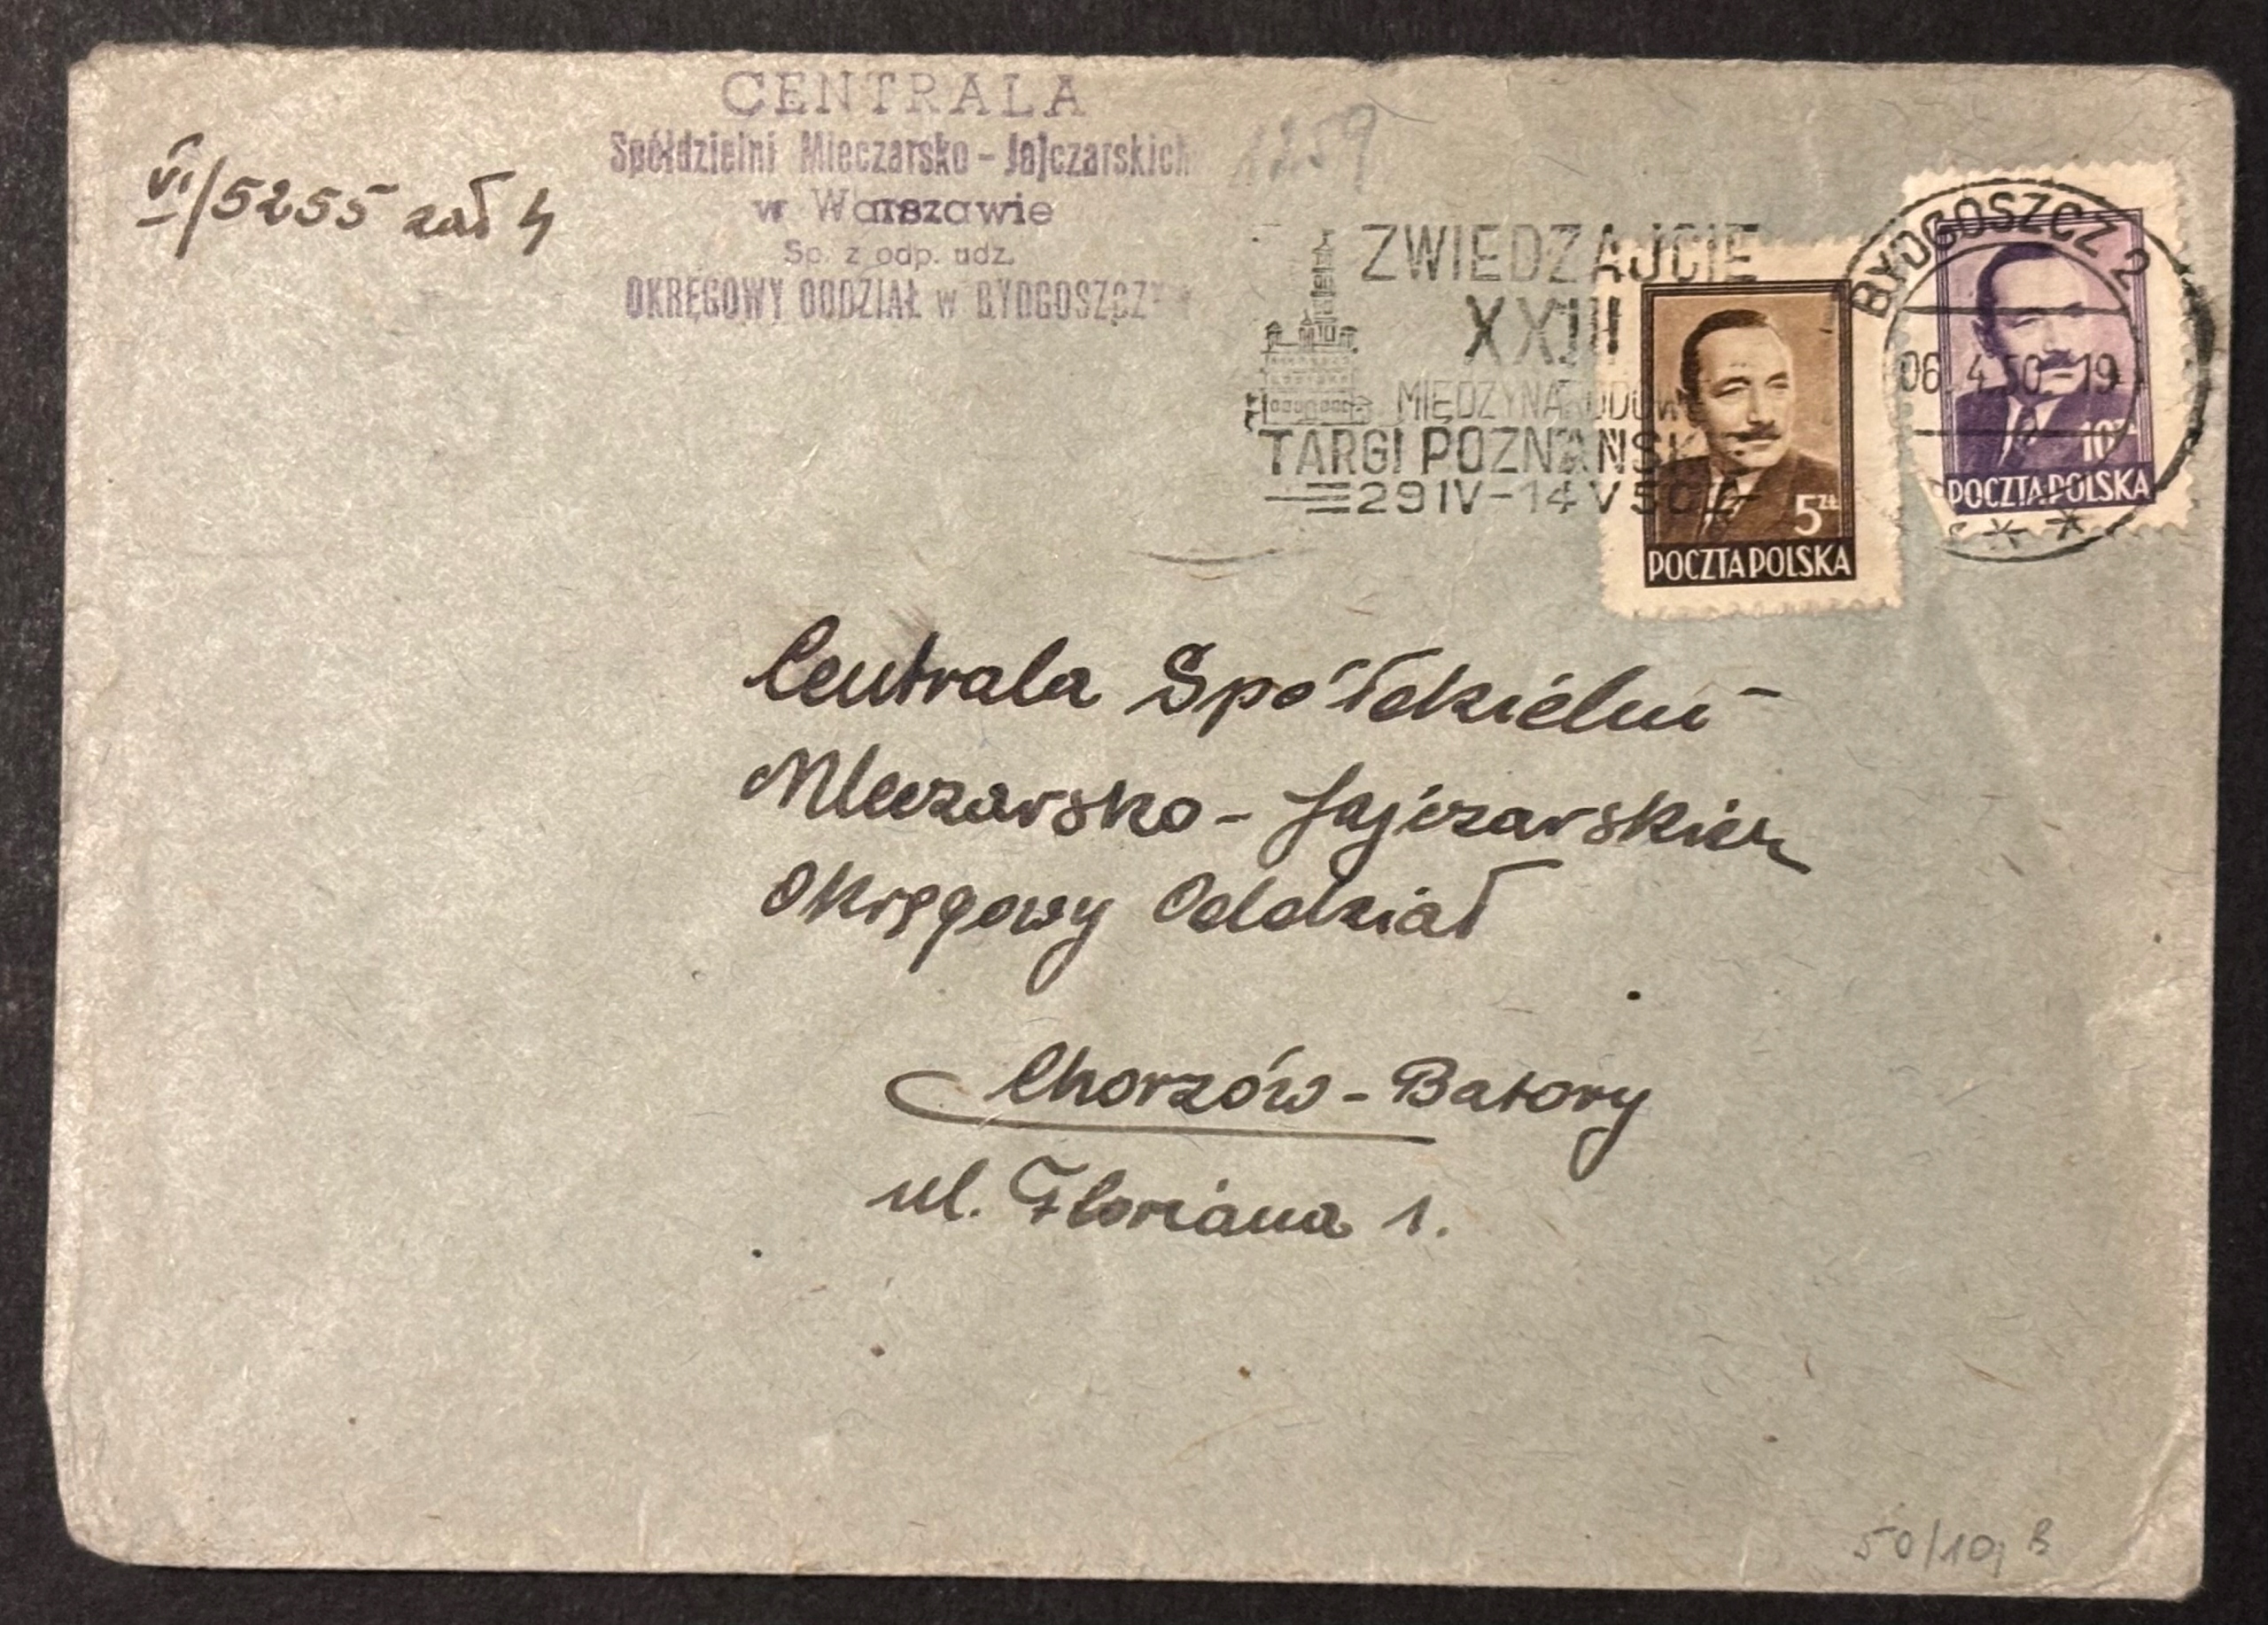 CENTRALA
Spółdzielni Mleczarsko-Jajczarskich
w Warszawie
Sp. z odp. udz.
OKRĘGOWY ODDZIAŁ w BYDGOSZCZY
VI/5255 zał 4
1259
ZWIEDZAJCIE
XXIII
MIĘDZYNARODOWE
TARGI POZNAŃSKIE
29 IV-14 V 50
BYDGOSZCZ 2
06.4.50.-19
5 ZŁ
POCZTA POLSKA
10 ZŁ
POCZTA POLSKA
Centrala Spółdzielni
Mleczarsko-Jajczarskich
Okręgowy Oddział
Chorzów-Batory
ul. Floriana 1.
50/10, B